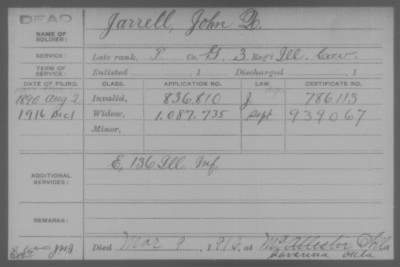 DEAD
NAME OF SOLDIER: Jarrell, John
SERVICE: Late rank, P Co. G, 3 Reg't Ill. Cav.
TERM OF SERVICE: Enlisted , 1 Discharged , 1
DATE OF FILING. CLASS. APPLICATION NO. LAW. CERTIFICATE NO.
1890 Aug 2 Invalid, 836,810 J 786113
1916 Dec 1 Widow, 1,087,735 Sept 939067
Minor,
ADDITIONAL SERVICES: E, 136 Ill. Inf.
REMARKS:
Died Mar 9, 1916, at McAllester Okla
Savanna Okla